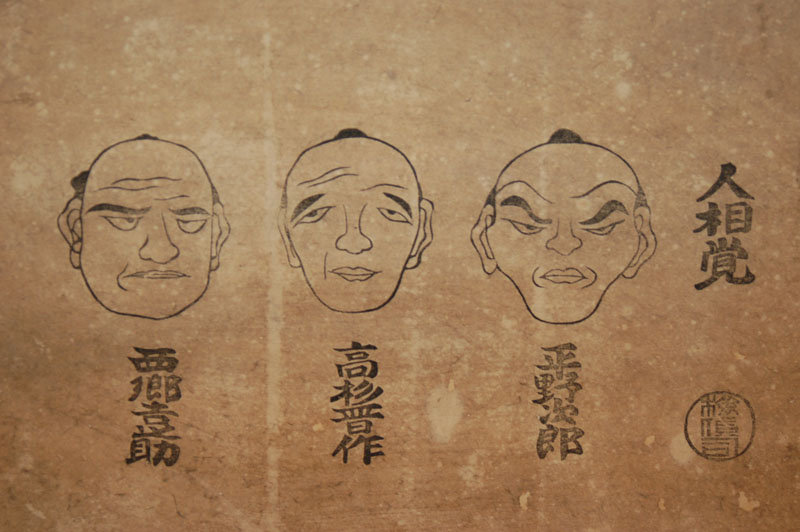 人相覚
平野次郎
高杉晋作
西郷吉之助